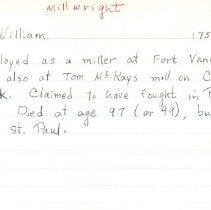 Millwright
William 175
loyed as a miller at Fort Van
also at Tom McKays mill on C
k. Claimed to have fought in
Died at age 97 (or 99), bu
St. Paul.